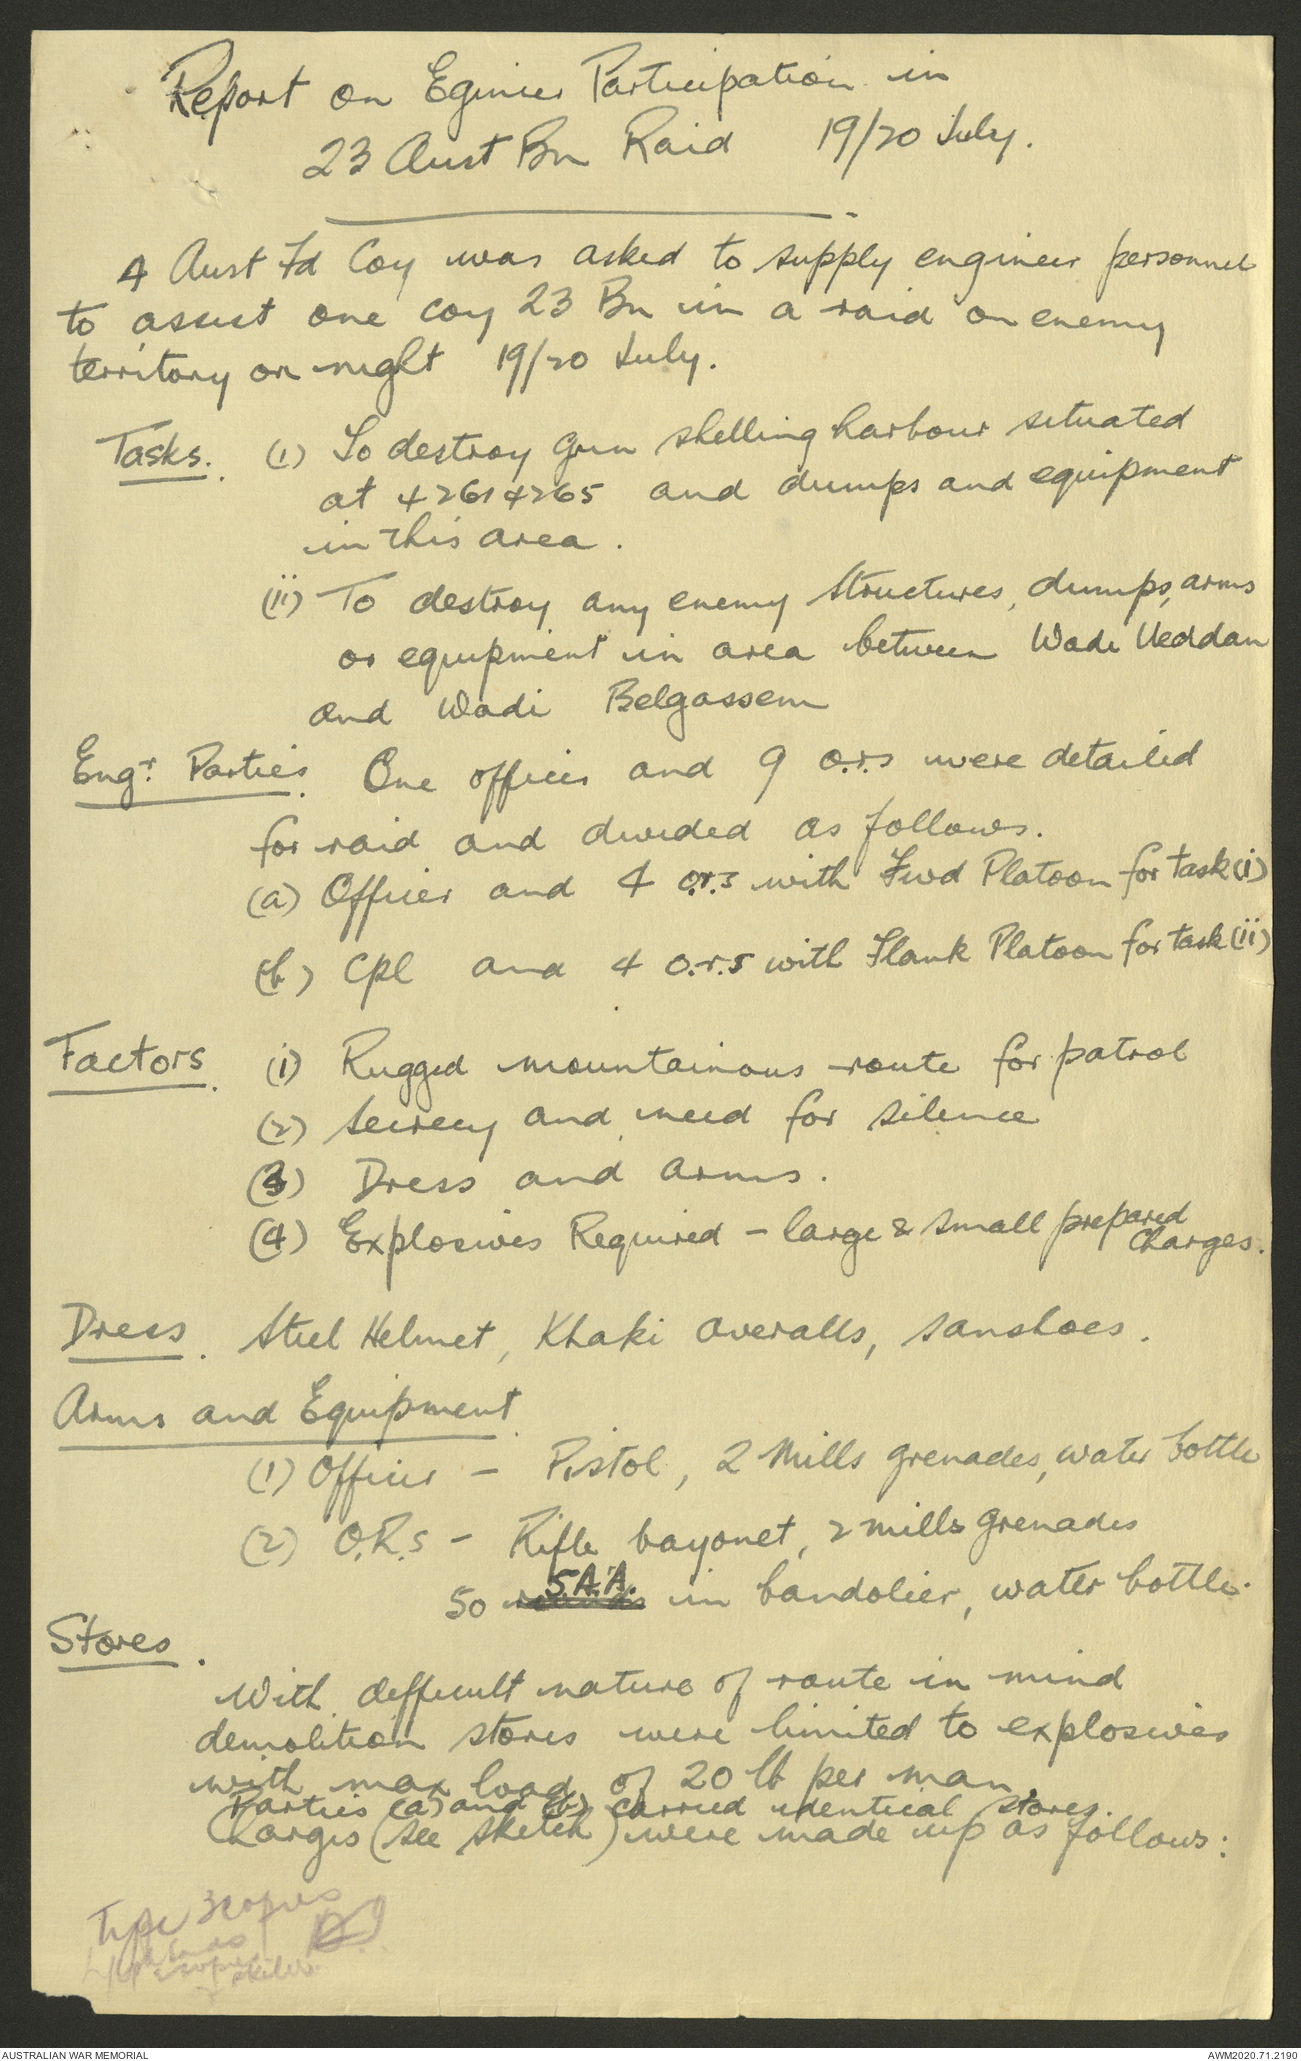 Report on Eginier Participation in
23 Aust Bn Raid 19/20 July.
4 Aust Fd Coy was asked to supply engineer personnel
to assist one coy 23 Bn in a raid on enemy
territory on night 19/20 July.
Tasks. (i) To destroy gun shelling harbour situated
at 42614265 and dumps and equipment
in this area.
(ii) To destroy any enemy structures, dumps, arms
or equipment in area between Wadi Ueddan
and Wadi Belgassem
Engr. Parties. One officer and 9 o.r.s were detailed
for raid and divided as follows.
(a) Officer and 4 o.r.s with Fwd Platoon for task (i)
(b) Cpl and 4 o.r.s with Flank Platoon for task (ii)
Factors. (1) Rugged mountainous route for patrol
(2) Secrecy and need for silence
(3) Dress and arms.
(4) Explosives Required - large & small prepared
charges.
Dress. Steel Helmet, Khaki overalls, sanshoes.
Arms and Equipment.
(1) Officer - Pistol, 2 Mills grenades, water bottle
(2) O.R.s - Rifle bayonet, 2 mills grenades
50 rounds S.A.A. in bandolier, water bottle.
Stores.
With difficult nature of route in mind
demolition stores were limited to explosives
with max load of 20 lb per man.
Parties (a) and (b) carried identical stores.
Charges (see sketch) were made up as follows:
Type 3 copies
AUSTRALIAN WAR MEMORIAL
AWM2020.71.2190